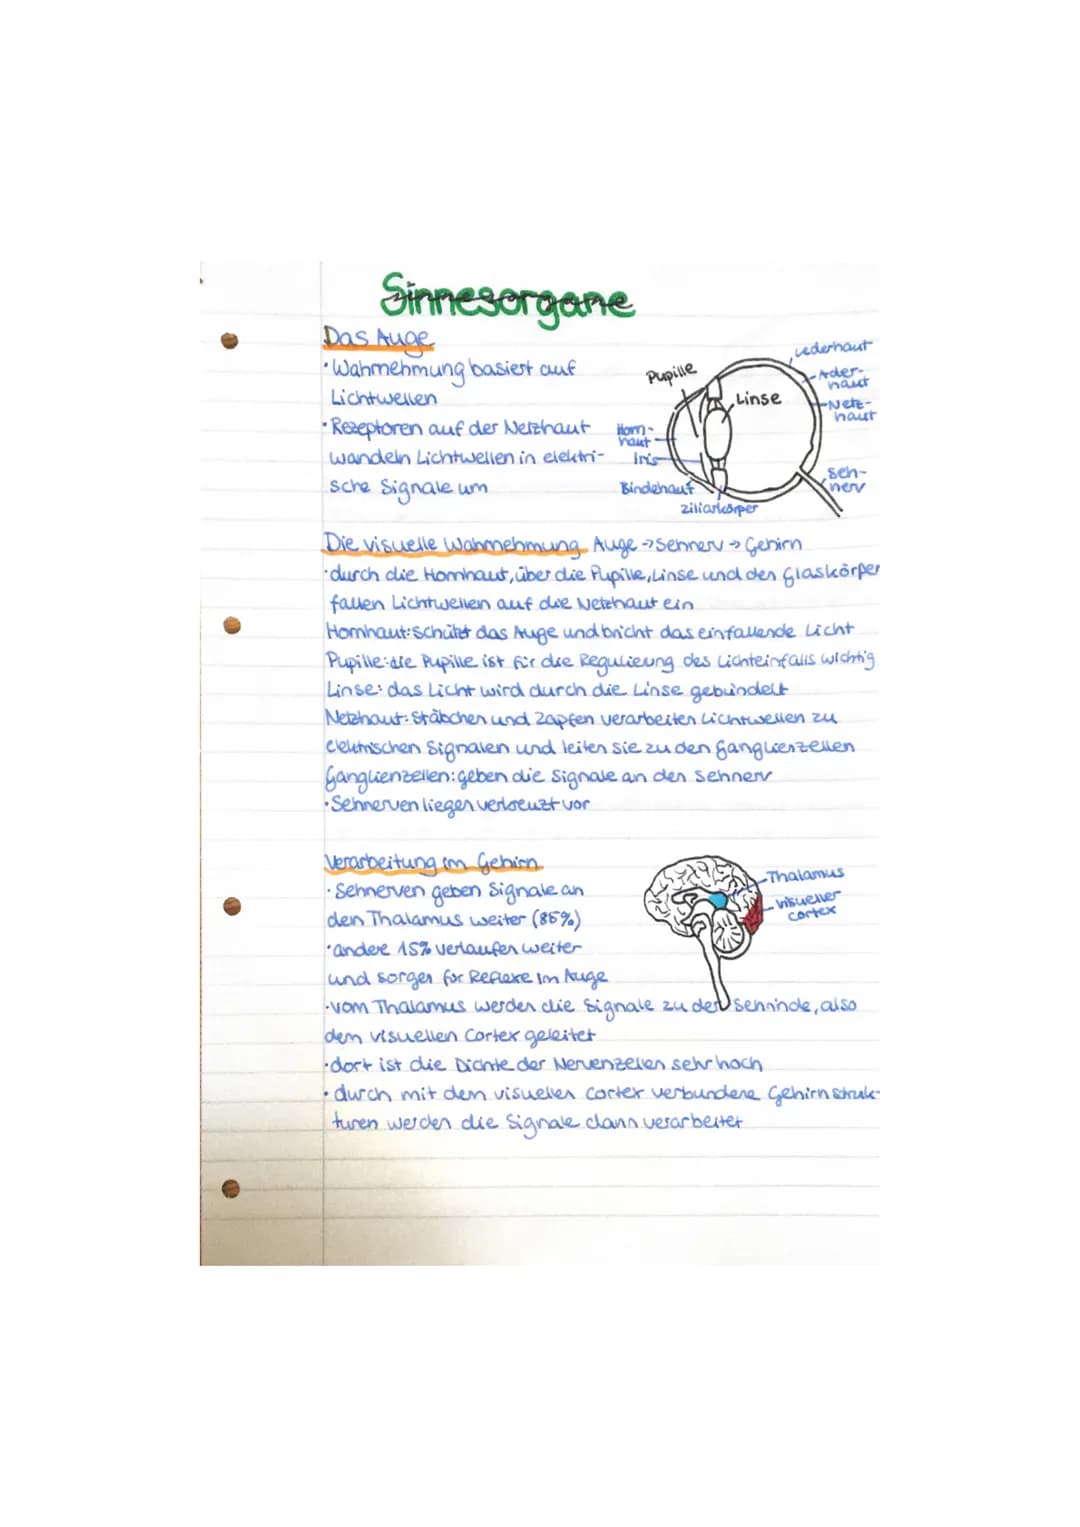 Sinnesorgane
Das Auge
· Wahrnehmung basiert auf
Lichtwellen
· Rezeptoren auf der Netzhaut
wandeln Lichtwellen in elektri-
sche Signale um
Pupille
Linse
Lederhaut
Ader-
haut
Netz-
haut
Horn-
haut
Iris
Bindehaut
Ziliarkörper
Seh-
nerv
Die visuelle Wahrnehmung Auge → Sehnerv → Gehirn
· durch die Hornhaut, über die Pupille, Linse und den Glaskörper
fallen Lichtwellen auf die Netzhaut ein
Hornhaut: schützt das Auge und bricht das einfallende Licht
Pupille: die Pupille ist für die Regulierung des Lichteinfalls wichtig
Linse: das Licht wird durch die Linse gebündelt
Netzhaut: Stäbchen und Zapfen verarbeiten Lichtwellen zu
elektrischen Signalen und leiten sie zu den Ganglienzellen
Ganglienzellen: geben die Signale an den Sehnerv
· Sehnerven liegen verkreuzt vor
Verarbeitung im Gehirn
· Sehnerven geben Signale an
den Thalamus weiter (85%)
· andere 15% verlaufen weiter
und sorgen für Reflexe im Auge
· vom Thalamus werden die Signale zu der Sehrinde, also
dem visuellen Cortex geleitet
· dort ist die Dichte der Nervenzellen sehr hoch
· durch mit dem visuellen Cortex verbundene Gehirnstruk-
turen werden die Signale dann verarbeitet
Thalamus
visueller
cortex